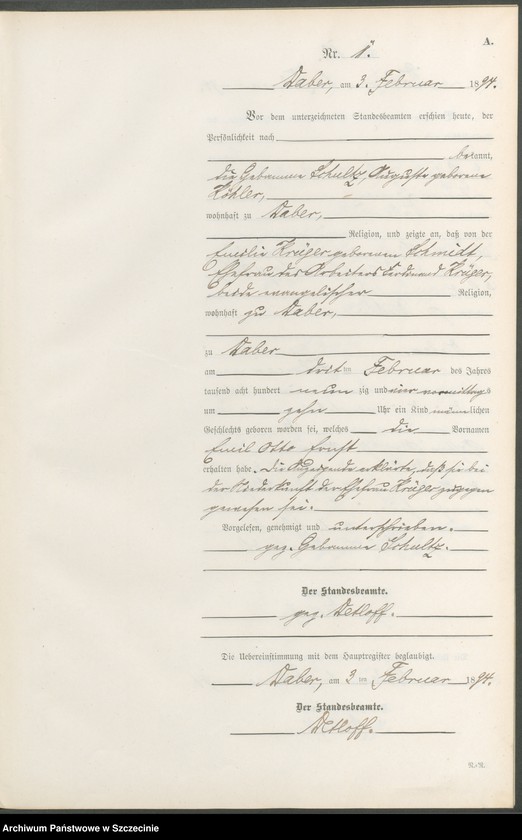 A.
Nr. 8.
Daber, am 3. Februar 1894.
Vor dem unterzeichneten Standesbeamten erschien heute, der
Persönlichkeit nach
bekannt,
die Hebamme Schultz, Auguste geborene
Köhler,
wohnhaft zu Daber,
Religion, und zeigte an, daß von der
Emilie Krüger geborenen Schmidt,
Ehefrau des Arbeiters Ferdinand Krüger,
beide evangelischer Religion,
wohnhaft zu Daber,
zu Daber
am dritten Februar des Jahres
tausend acht hundert neun zig und vier vormittags
um zehn Uhr ein Kind männlichen
Geschlechts geboren worden sei, welches die Vornamen
Emil Otto Ernst
erhalten habe. Die Anzeigende erklärte, daß sie bei
der Niederkunft der Ehefrau Krüger zugegen
gewesen sei.
Vorgelesen, genehmigt und unterschrieben.
gez. Hebamme Schultz.
Der Standesbeamte.
gez. Detloff.
Die Uebereinstimmung mit dem Hauptregister beglaubigt.
Daber, am 3ten Februar 1894.
Der Standesbeamte.
Detloff.
Archiwum Państwowe w Szczecinie